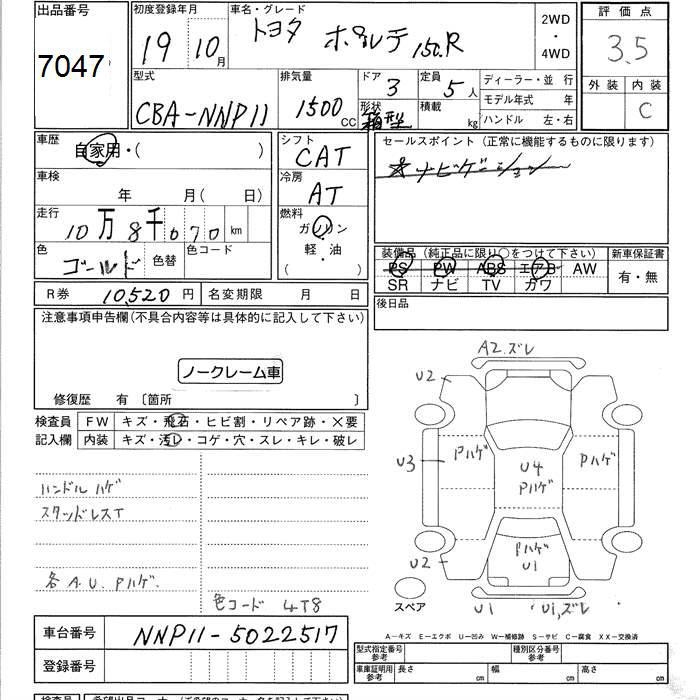 出品番号 7047
初度登録年月 19 10月
車名・グレード トヨタ ポルテ 150.R
2WD・4WD
評価点 3.5
外装 内装 C
型式 CBA-NNP11
排気量 1500 CC
ドア 3 定員 5人
形状 箱型 積載 kg
ディーラー・並 行
モデル年式 年
ハンドル 左・右
車歴 自家用・( )
シフト CAT
セールスポイント(正常に機能するものに限ります)
ナビゲーション
車検 年 月( 日)
冷房 AT
走行 10万8千070km
燃料 ガソリン
軽・油
( )
色 ゴールド 色替 色コード
装備品(純正品に限り○をつけて下さい) 新車保証書
PS PW ABS エアB AW 有・無
SR ナビ TV カワ
R券 10,520円 名変期限 月 日
後日品
注意事項申告欄(不具合内容等は具体的に記入して下さい)
ノークレーム車
修復歴 有〔箇所 〕
検査員記入欄
FW キズ・飛石・ヒビ割・リペア跡・×要
内装 キズ・汚レ・コゲ・穴・スレ・キレ・破レ
ハンドルハゲ
スタッドレスT
各A.U.Pハゲ.
色コード 4T8
A2.ズレ
U2
U3
Pハゲ
U4
Pハゲ
Pハゲ
Pハゲ
U1
U2
スペア
U1
U1,ズレ
A-キズ E-エクボ U-凹み W-補修跡 S-サビ C-腐食 XX-交換済
車台番号 NNP11-5022517
登録番号
型式指定番号参考 種別区分番号参考
車庫証明用参考 長さ cm 幅 cm 高さ cm